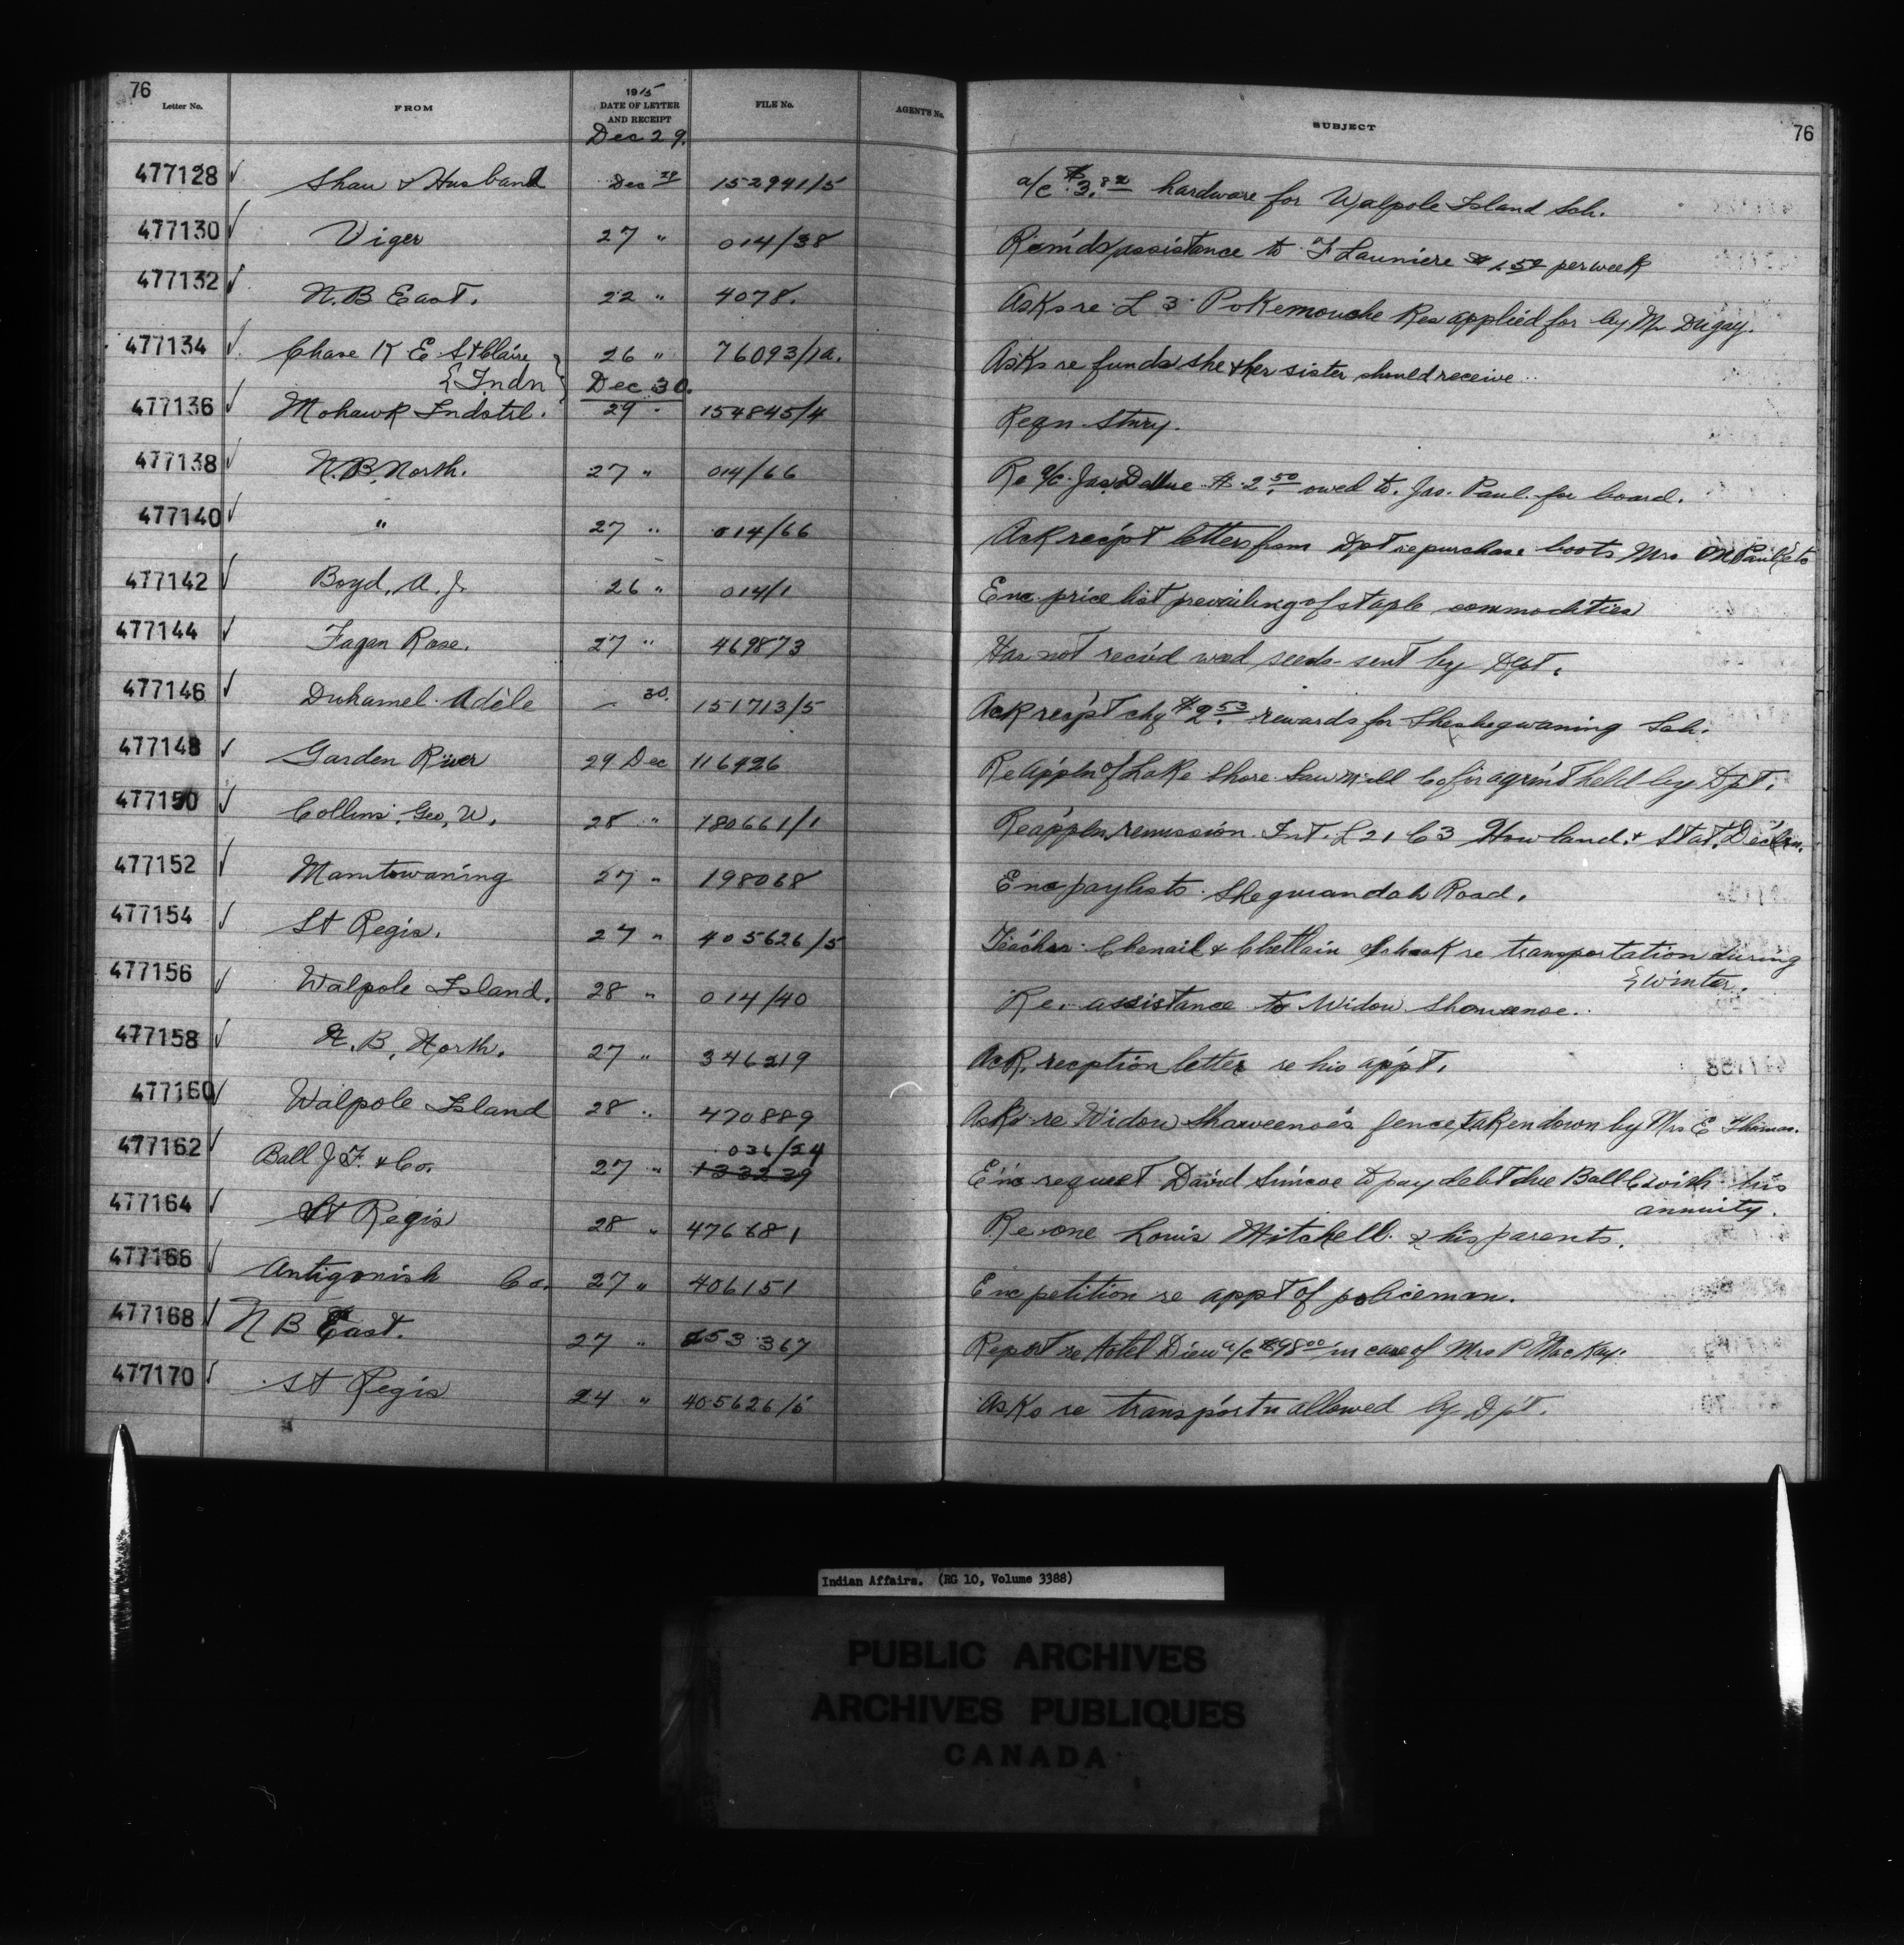 76
Letter No. FROM 1915 DATE OF LETTER AND RECEIPT FILE No. AGENT'S No. SUBJECT 76
Dec 29.
477128 Shaw & Husband Dec 29 152941/5 a/c $3. hardware for Walpole Island Sch.
477130 Viger 27 " 014/38 assistance to F Launiere per week
477132 N.B East. 22 " 4078. Asks re L 3 Pokemouche Res applied for by Mr Dugay.
477134 Chase K E St Claire 26 " 76093/1a. Asks re funds she & her sister should receive
{Indn Dec 30.
477136 Mohawk Indstrl. 29 " 154845/4 Reqn Stnry.
477138 N.B. North. 27 " 014/66 Re a/c Jas. $2.50 owed to Jas. Paul for board.
477140 " 27 " 014/66 Ack recpt letters from Dpt re purchase boots Mrs M Paul
477142 Boyd, A. J. 26 " 014/1 Enc price list prevailing of staple commodities
477144 Fagan Rose. 27 " 469873 Has not rec'd seeds sent by Dpt.
477146 Duhamel Adèle 30. 151713/5 Ack recp't chq $2.53 rewards for Sheshegwaning Sch.
477148 Garden River 29 Dec 116926 Re appln of Lake Shore Sawmill Co for agrm't held by Dpt.
477150 Collins, Geo, W. 28 " 180661/1 Re appln remission Int. L 21 C3 Howland & Stat. Declrn.
477152 Manitowaning 27 " 198068 Enc paylists Sheguiandah Road.
477154 St Regis. 27 " 405626/5 Teacher Chenail & School re transportation during
{winter.
477156 Walpole Island. 28 " 014/40 Re. assistance to Widow
477158 N.B. North. 27 " 346219 Ack. reception letter re his app't.
477160 Walpole Island 28 " 470889 Asks re Widow Shaweenoe's fence taken down by Mrs E Thomas.
036/24
477162 Ball J F. & Co. 27 " 133239 Enc request David Simcoe to pay debt due Ball Co with his
annuity.
477164 St Regis 28 " 476681 Re one Louis Mitchell & his parents.
477166 Antigonish Co. 27 " 406151 Enc petition re appt of policeman.
477168 N B East. 27 " 453367 Report re Hotel Dieu a/c $98.00 in case of Mrs P MacKay.
477170 St Regis 24 " 405626/5 Asks re transportn allowed by Dpt.
Indian Affairs. (RG 10, Volume 3388)
PUBLIC ARCHIVES
ARCHIVES PUBLIQUES
CANADA